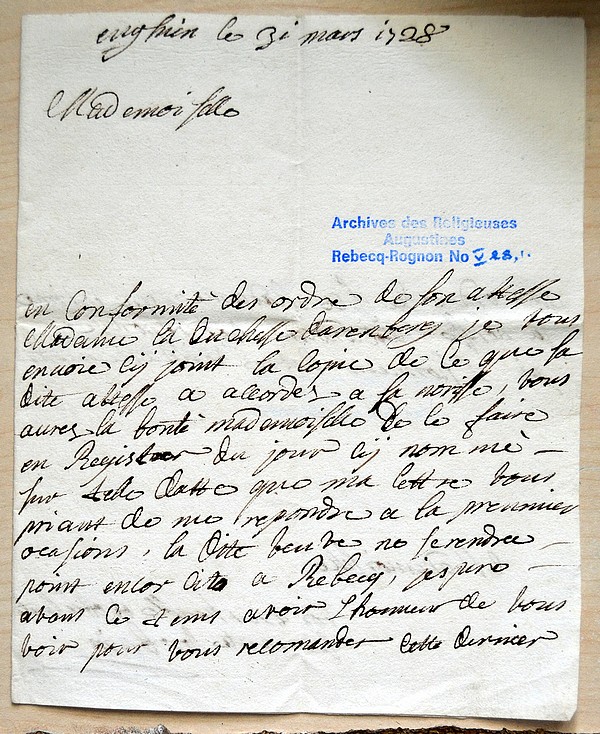 enghien le 31 mars 1728
Mademoiselle
Archives des Religieuses
Augustines
Rebecq-Rognon No V 28,1.
en Conformité des ordre de son altesse
Madame la Duchesse darenberg je vous
envoie cÿ joint la Copie de ce que sa
dite altesse a accordez a sa norisse, vous
aures la bonté mademoiselle de le faire
en Register du jour cÿ nommè –
sur datte que ma lettre vous
priant de me repondre a la preumier
ocasions, la ditte veuve ne serendra –
point encor a Rebecq, jespere –
avant ce tems avoir Lhonneur de vous
voir pour vous recomander cette dernier